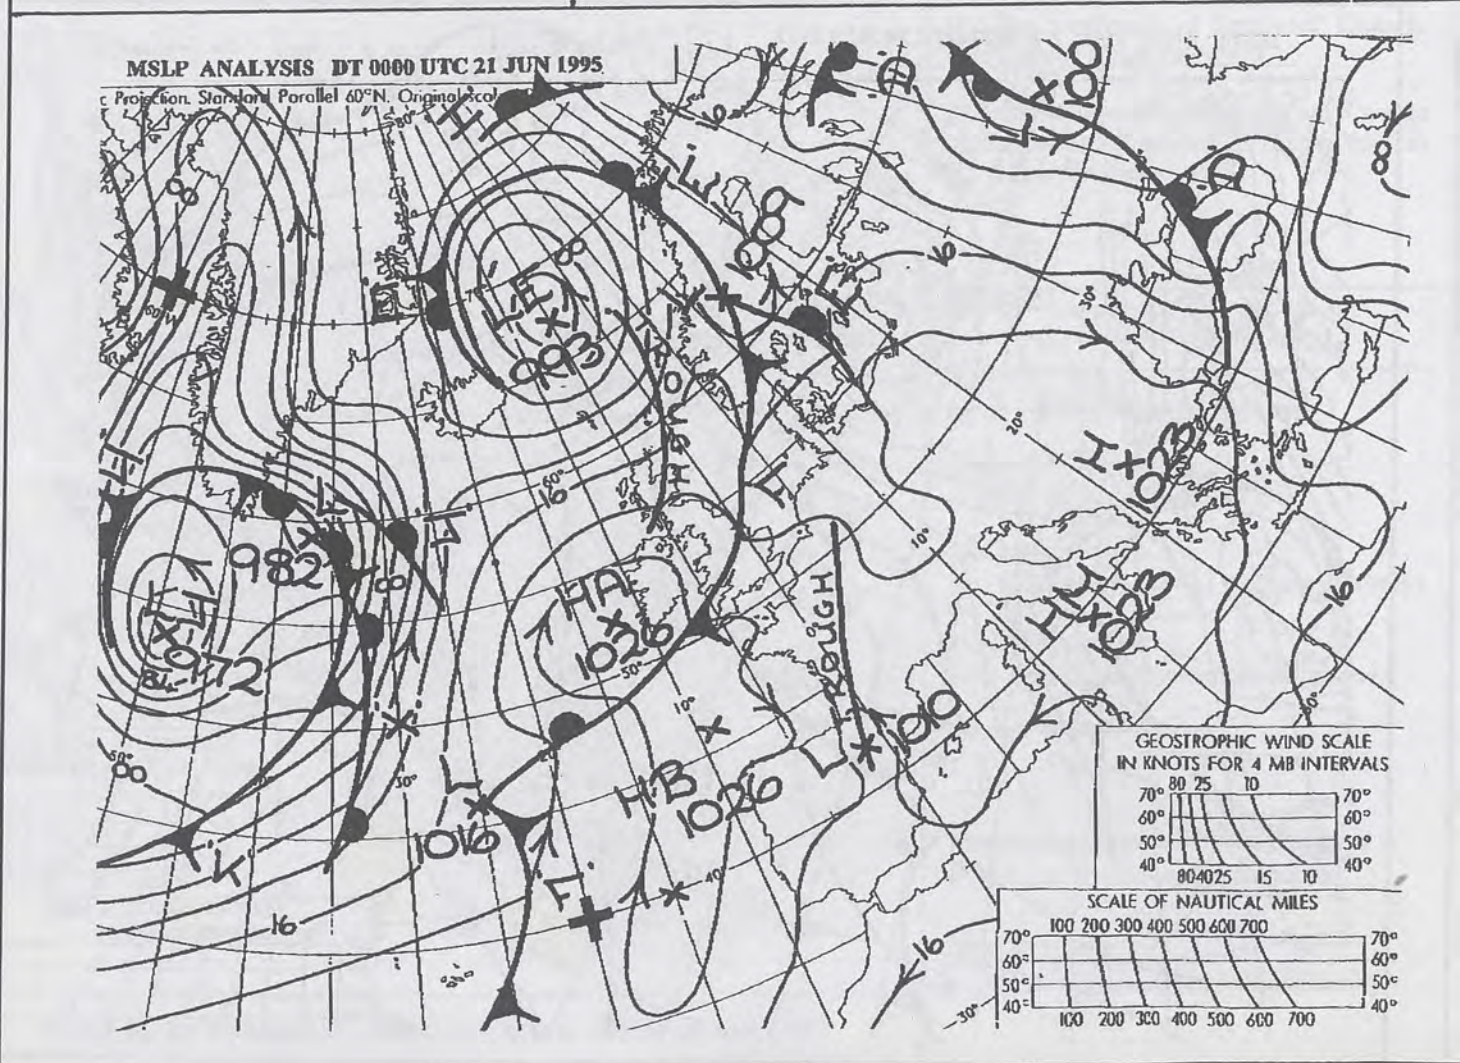 MSLP ANALYSIS DT 0000 UTC 21 JUN 1995
c Projection. Standard Parallel 60°N. Original scal
80°
16
8
1008
16
30°
993
TROUGH
60°
16
20°
10°
H
1023
982
H
972
HA
1026
50°
TROUGH
HM
1023
16
10°
1010
HB
1026
L
1016
30°
40°
16
16
30°
GEOSTROPHIC WIND SCALE
IN KNOTS FOR 4 MB INTERVALS
80 25 10
70° 70°
60° 60°
50° 50°
40° 40°
80 40 25 15 10
SCALE OF NAUTICAL MILES
100 200 300 400 500 600 700
70° 70°
60° 60°
50° 50°
40° 40°
100 200 300 400 500 600 700